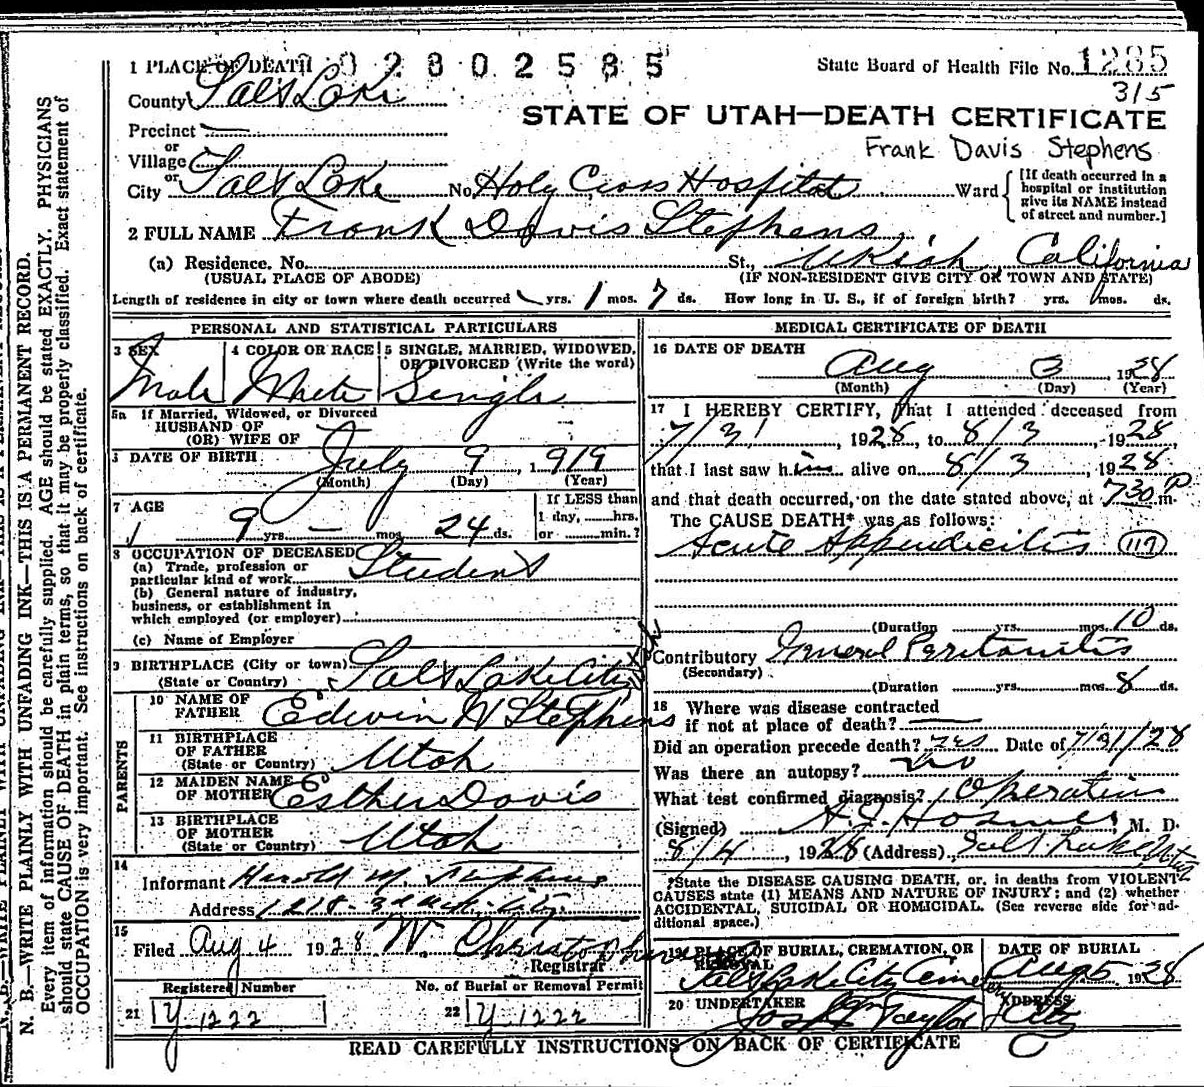 1 PLACE OF DEATH 002802585 State Board of Health File No. 1285
County Salt Lake 315
STATE OF UTAH—DEATH CERTIFICATE
Precinct —
or
Village
Frank Davis Stephens
City or Salt Lake No. Holy Cross Hospital Ward
[If death occurred in a hospital or institution give its NAME instead of street and number.]
2 FULL NAME Frank Davis Stephens
(a) Residence. No. St., Ukiah, California
(USUAL PLACE OF ABODE) (IF NON-RESIDENT GIVE CITY OR TOWN AND STATE)
Length of residence in city or town where death occurred yrs. 1 mos. 7 ds. How long in U. S., if of foreign birth? yrs. mos. ds.
PERSONAL AND STATISTICAL PARTICULARS
3 SEX 4 COLOR OR RACE 5 SINGLE, MARRIED, WIDOWED,
OR DIVORCED (Write the word)
Male White Single
5a If Married, Widowed, or Divorced
HUSBAND OF
(OR) WIFE OF
DATE OF BIRTH July 9, 1919
(Month) (Day) (Year)
7 AGE If LESS than
1 day, hrs.
9 yrs. — mos. 24 ds. or min.?
8 OCCUPATION OF DECEASED
(a) Trade, profession or
particular kind of work Student
(b) General nature of industry,
business, or establishment in
which employed (or employer)
(c) Name of Employer
9 BIRTHPLACE (City or town)
(State or Country) Salt Lake City
PARENTS
10 NAME OF
FATHER Edwin W Stephens
11 BIRTHPLACE
OF FATHER
(State or Country) Utah
12 MAIDEN NAME
OF MOTHER Esther Davis
13 BIRTHPLACE
OF MOTHER
(State or Country) Utah
14
Informant Harold M. Stephens
Address 1218 - 3rd Ave - City
15
Filed Aug 4 1928
Registrar
Registered Number No. of Burial or Removal Permit
21 Y 1222 22 Y 1222
MEDICAL CERTIFICATE OF DEATH
16 DATE OF DEATH
Aug 3 1928
(Month) (Day) (Year)
17 I HEREBY CERTIFY, That I attended deceased from
7/31, 1928, to 8/3, 1928
that I last saw him alive on 8/3, 1928
and that death occurred, on the date stated above, at 730 P m.
The CAUSE DEATH* was as follows:
Acute Appendicitis (117)
(Duration yrs. mos. 10 ds.
Contributory General Peritonitis
(Secondary)
(Duration yrs. mos. 8 ds.
18 Where was disease contracted
if not at place of death? —
Did an operation precede death? yes Date of 7/31/28
Was there an autopsy? no
What test confirmed diagnosis? Operation
(Signed) M. D.
8/4, 1928 (Address) Salt Lake Utah
*State the DISEASE CAUSING DEATH, or, in deaths from VIOLENT
CAUSES state (1) MEANS AND NATURE OF INJURY; and (2) whether
ACCIDENTAL, SUICIDAL OR HOMICIDAL. (See reverse side for ad-
ditional space.)
19 PLACE OF BURIAL, CREMATION, OR REMOVAL DATE OF BURIAL
Salt Lake City Cemetery Aug 5 1928
20 UNDERTAKER ADDRESS
Taylor City
READ CAREFULLY INSTRUCTIONS ON BACK OF CERTIFICATE
N. B.—WRITE PLAINLY WITH UNFADING INK—THIS IS A PERMANENT RECORD.
Every item of information should be carefully supplied. AGE should be stated EXACTLY. PHYSICIANS
should state CAUSE OF DEATH in plain terms, so that it may be properly classified. Exact statement of
OCCUPATION is very important. See instructions on back of certificate.